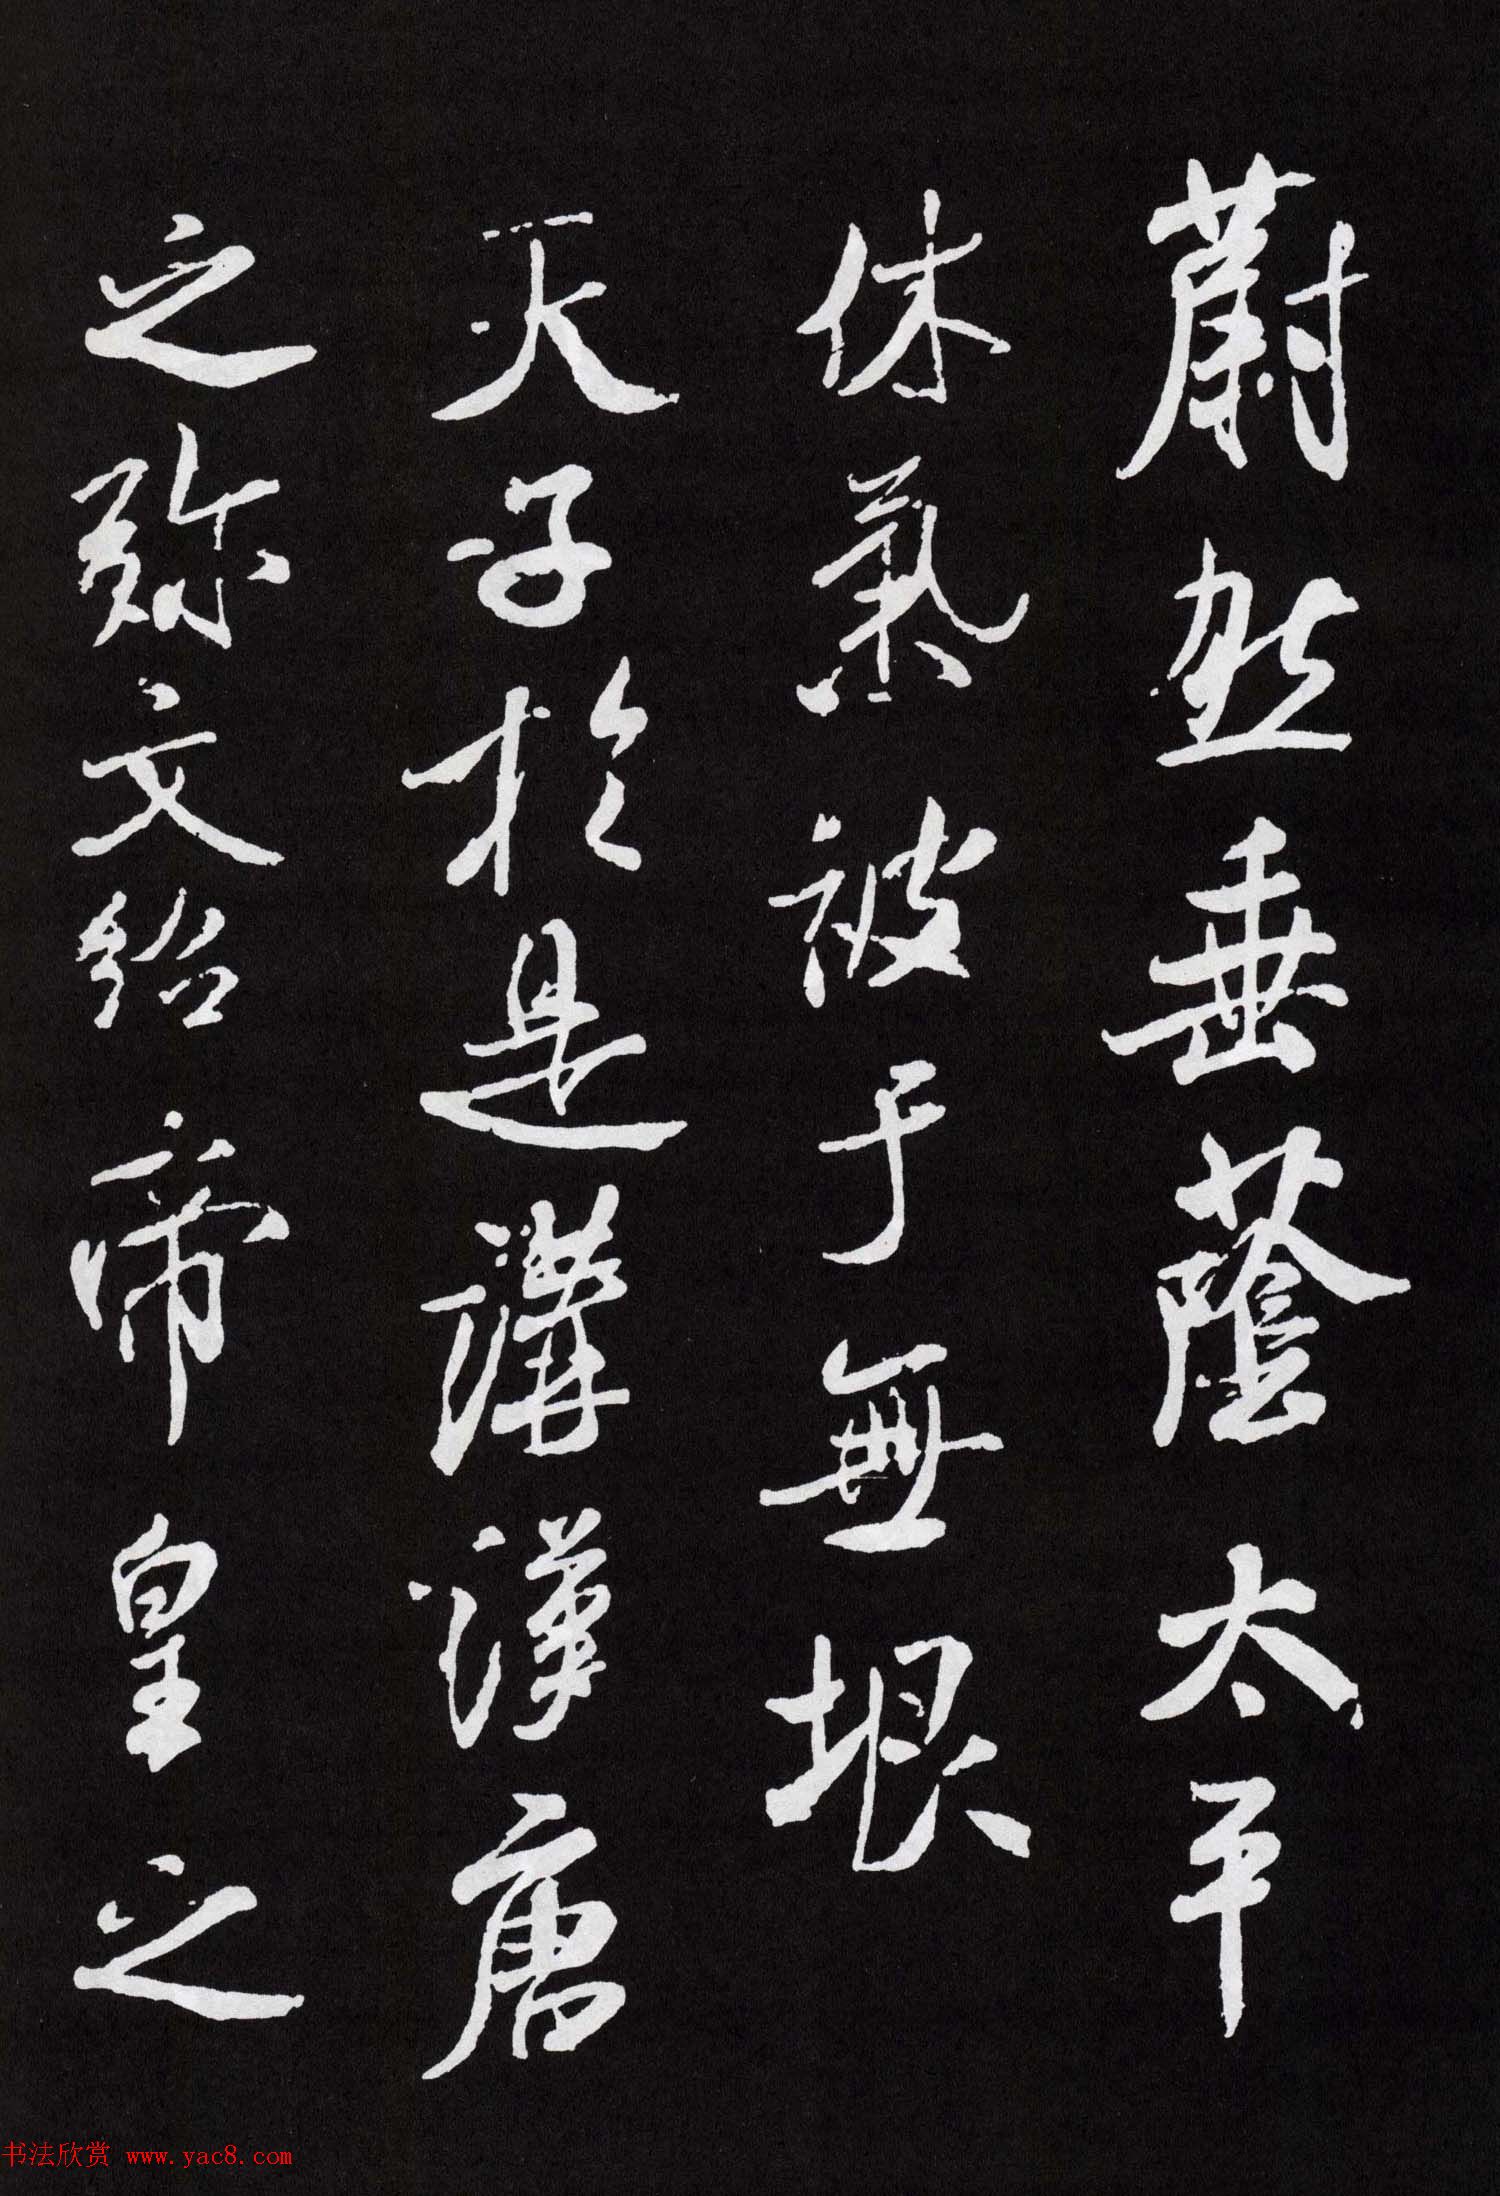 蔚然垂蔭太平
休氣被于無垠
天子於是講漢唐
之弥文紹帝皇之
书法欣赏 www.yac8.com